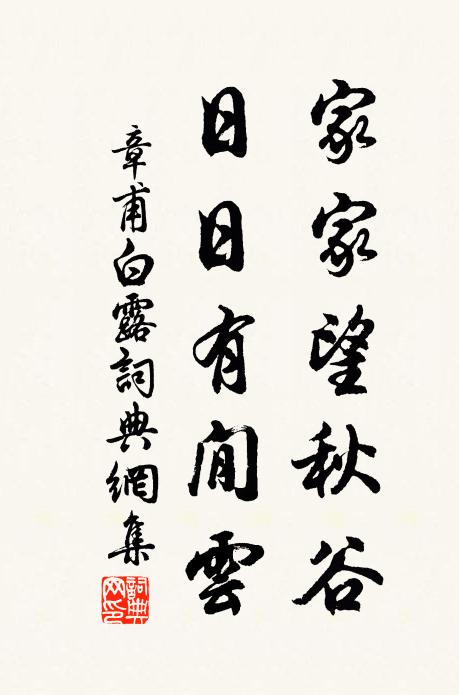 家家望秋谷
日日有閒雲
章甫白露詞典網集
詞典網印